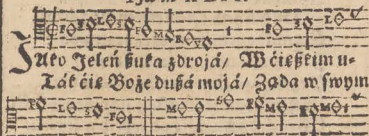 Jáko Jeleń ßuka zdrojá/ W ćięßkim u-
Ták ćię Boże dußá mojá/ Żąda w swym